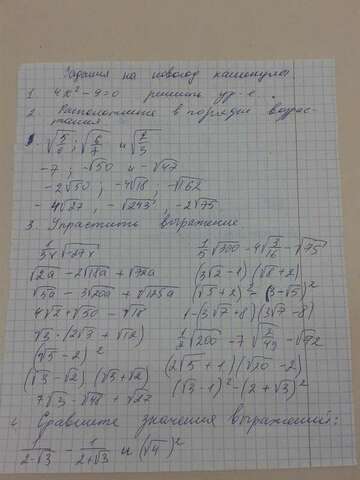 Задания на новогод каникулы.
1. 4x² - 9 = 0 решить ур-е.
2. Расположите в порядке возрас-
тания
√50 и -√47
-7 ; -√50 и -√47
-2√50 ; -4√18 ; -√162
-4√27 , -√243 , -2√75
3. Упростить выражение
√2a - 2√18a + √72a (3√2 - 1) (√8 + 2)
√5a - 3√20a + √125a (√5 + 2)² - (3 - √5)²
4√2 + √50 - √18 (-3√7 + 8)(3√7 - 8)
√3 · (2√3 + √12)
(√5 - 2)² (2√5 + 1)(√20 - 2)
(√3 - √2) (√3 + √2) (√3 - 1)² - (2 + √3)²
7√3 - √48 + √27
Сравните значения выражений:
1/(2-√3) - 1/(2+√3) и (√4)²